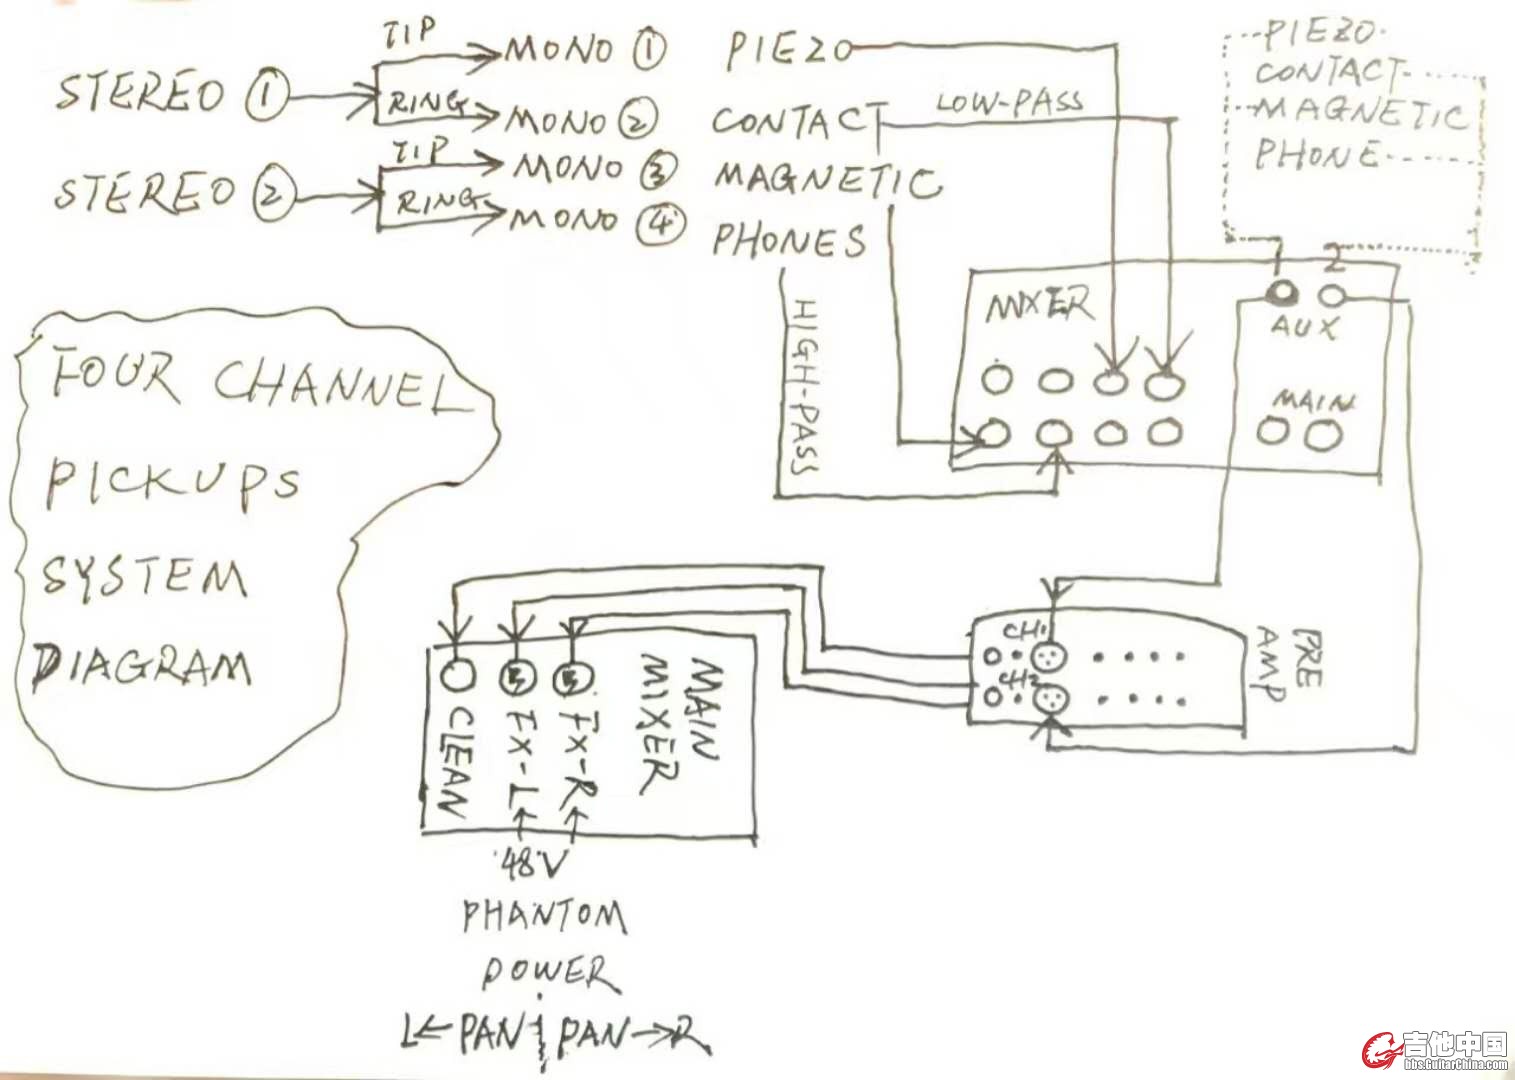 STEREO ①
TIP
MONO ①
RING
MONO ②
STEREO ②
TIP
MONO ③
RING
MONO ④
PIEZO
CONTACT
LOW-PASS
MAGNETIC
PHONES
HIGH-PASS
PIEZO
CONTACT
MAGNETIC
PHONE
1 2
MIXER
AUX
MAIN
FOUR CHANNEL
PICKUPS
SYSTEM
DIAGRAM
CH1
CH2
PRE
AMP
MAIN
MIXER
CLEAN
FX-L
FX-R
48V
PHANTOM
POWER
L←PAN PAN→R
吉他中国
bbs.GuitarChina.com